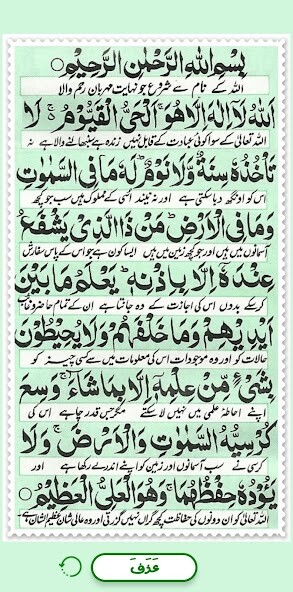 بِسْمِ اللّٰهِ الرَّحْمٰنِ الرَّحِیْمِ
اللہ کے نام سے شروع جو نہایت مہربان رحم والا
اَللّٰهُ لَاۤ اِلٰهَ اِلَّا هُوَ ۚ اَلْحَیُّ الْقَیُّوْمُ ۚ لَا
اللہ تعالیٰ کے سوا کوئی عبادت کے قابل نہیں زندہ ہے سنبھالنے والا ہے نہ
تَاْخُذُهٗ سِنَةٌ وَّلَا نَوْمٌ ؕ لَهٗ مَا فِی السَّمٰوٰتِ
اس کو اونگھ دبا سکتی ہے اور نہ نیند اسی کے مملوک ہیں سب جو کچھ
وَمَا فِی الْاَرْضِ ؕ مَنْ ذَا الَّذِیْ یَشْفَعُ
آسمانوں میں ہیں اور جو کچھ زمین میں ہیں ایسا کون ہے جو اس کے پاس سفارش
عِنْدَهٗۤ اِلَّا بِاِذْنِهٖ ؕ یَعْلَمُ مَا بَیْنَ
کرسکے بدوں اس کی اجازت کے وہ جانتا ہے ان کے تمام حاضر و غائب
اَیْدِیْهِمْ وَمَا خَلْفَهُمْ ۚ وَلَا یُحِیْطُوْنَ
حالات کو اور وہ موجودات اس کی معلومات میں سے کسی چیز کو
بِشَیْءٍ مِّنْ عِلْمِهٖۤ اِلَّا بِمَا شَآءَ ۚ وَسِعَ
اپنے احاطۂ علمی میں نہیں لا سکتے مگر جس قدر چاہے اس کی
كُرْسِیُّهُ السَّمٰوٰتِ وَالْاَرْضَ ۚ وَلَا
کرسی نے سب آسمانوں اور زمین کو اپنے اندر لے رکھا ہے اور
یَـُٔوْدُهٗ حِفْظُهُمَا ۚ وَهُوَ الْعَلِیُّ الْعَظِیْمُ
اللہ تعالیٰ کو ان دونوں کی حفاظت کچھ گراں نہیں گزرتی اور وہ عالی شان عظیم الشان ہے